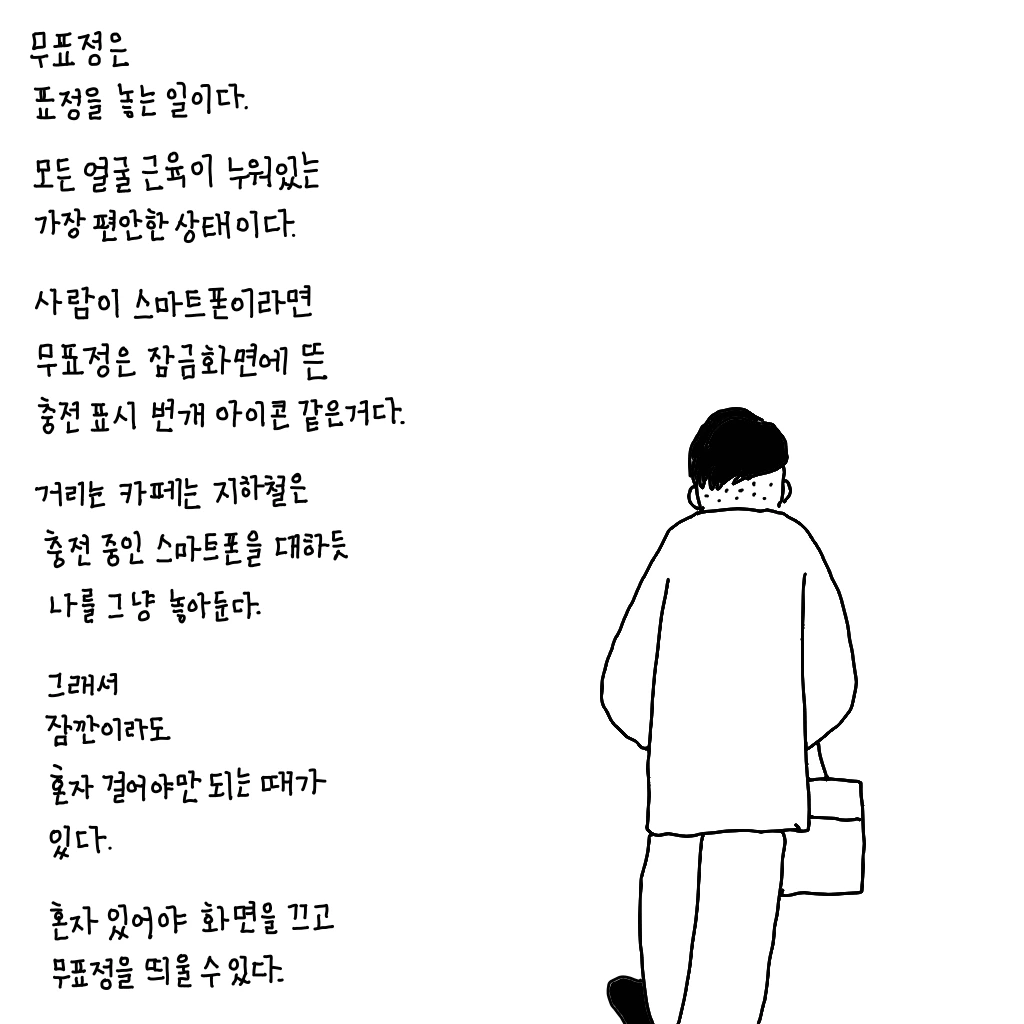 무표정은
표정을 놓는 일이다.
모든 얼굴 근육이 누워있는
가장 편안한 상태이다.
사람이 스마트폰이라면
무표정은 잠금화면에 뜬
충전 표시 번개 아이콘 같은거다.
거리는 카페는 지하철은
충전 중인 스마트폰을 대하듯
나를 그냥 놓아둔다.
그래서
잠깐이라도
혼자 걸어야만 되는 때가
있다.
혼자 있어야 화면을 끄고
무표정을 띄울 수 있다.